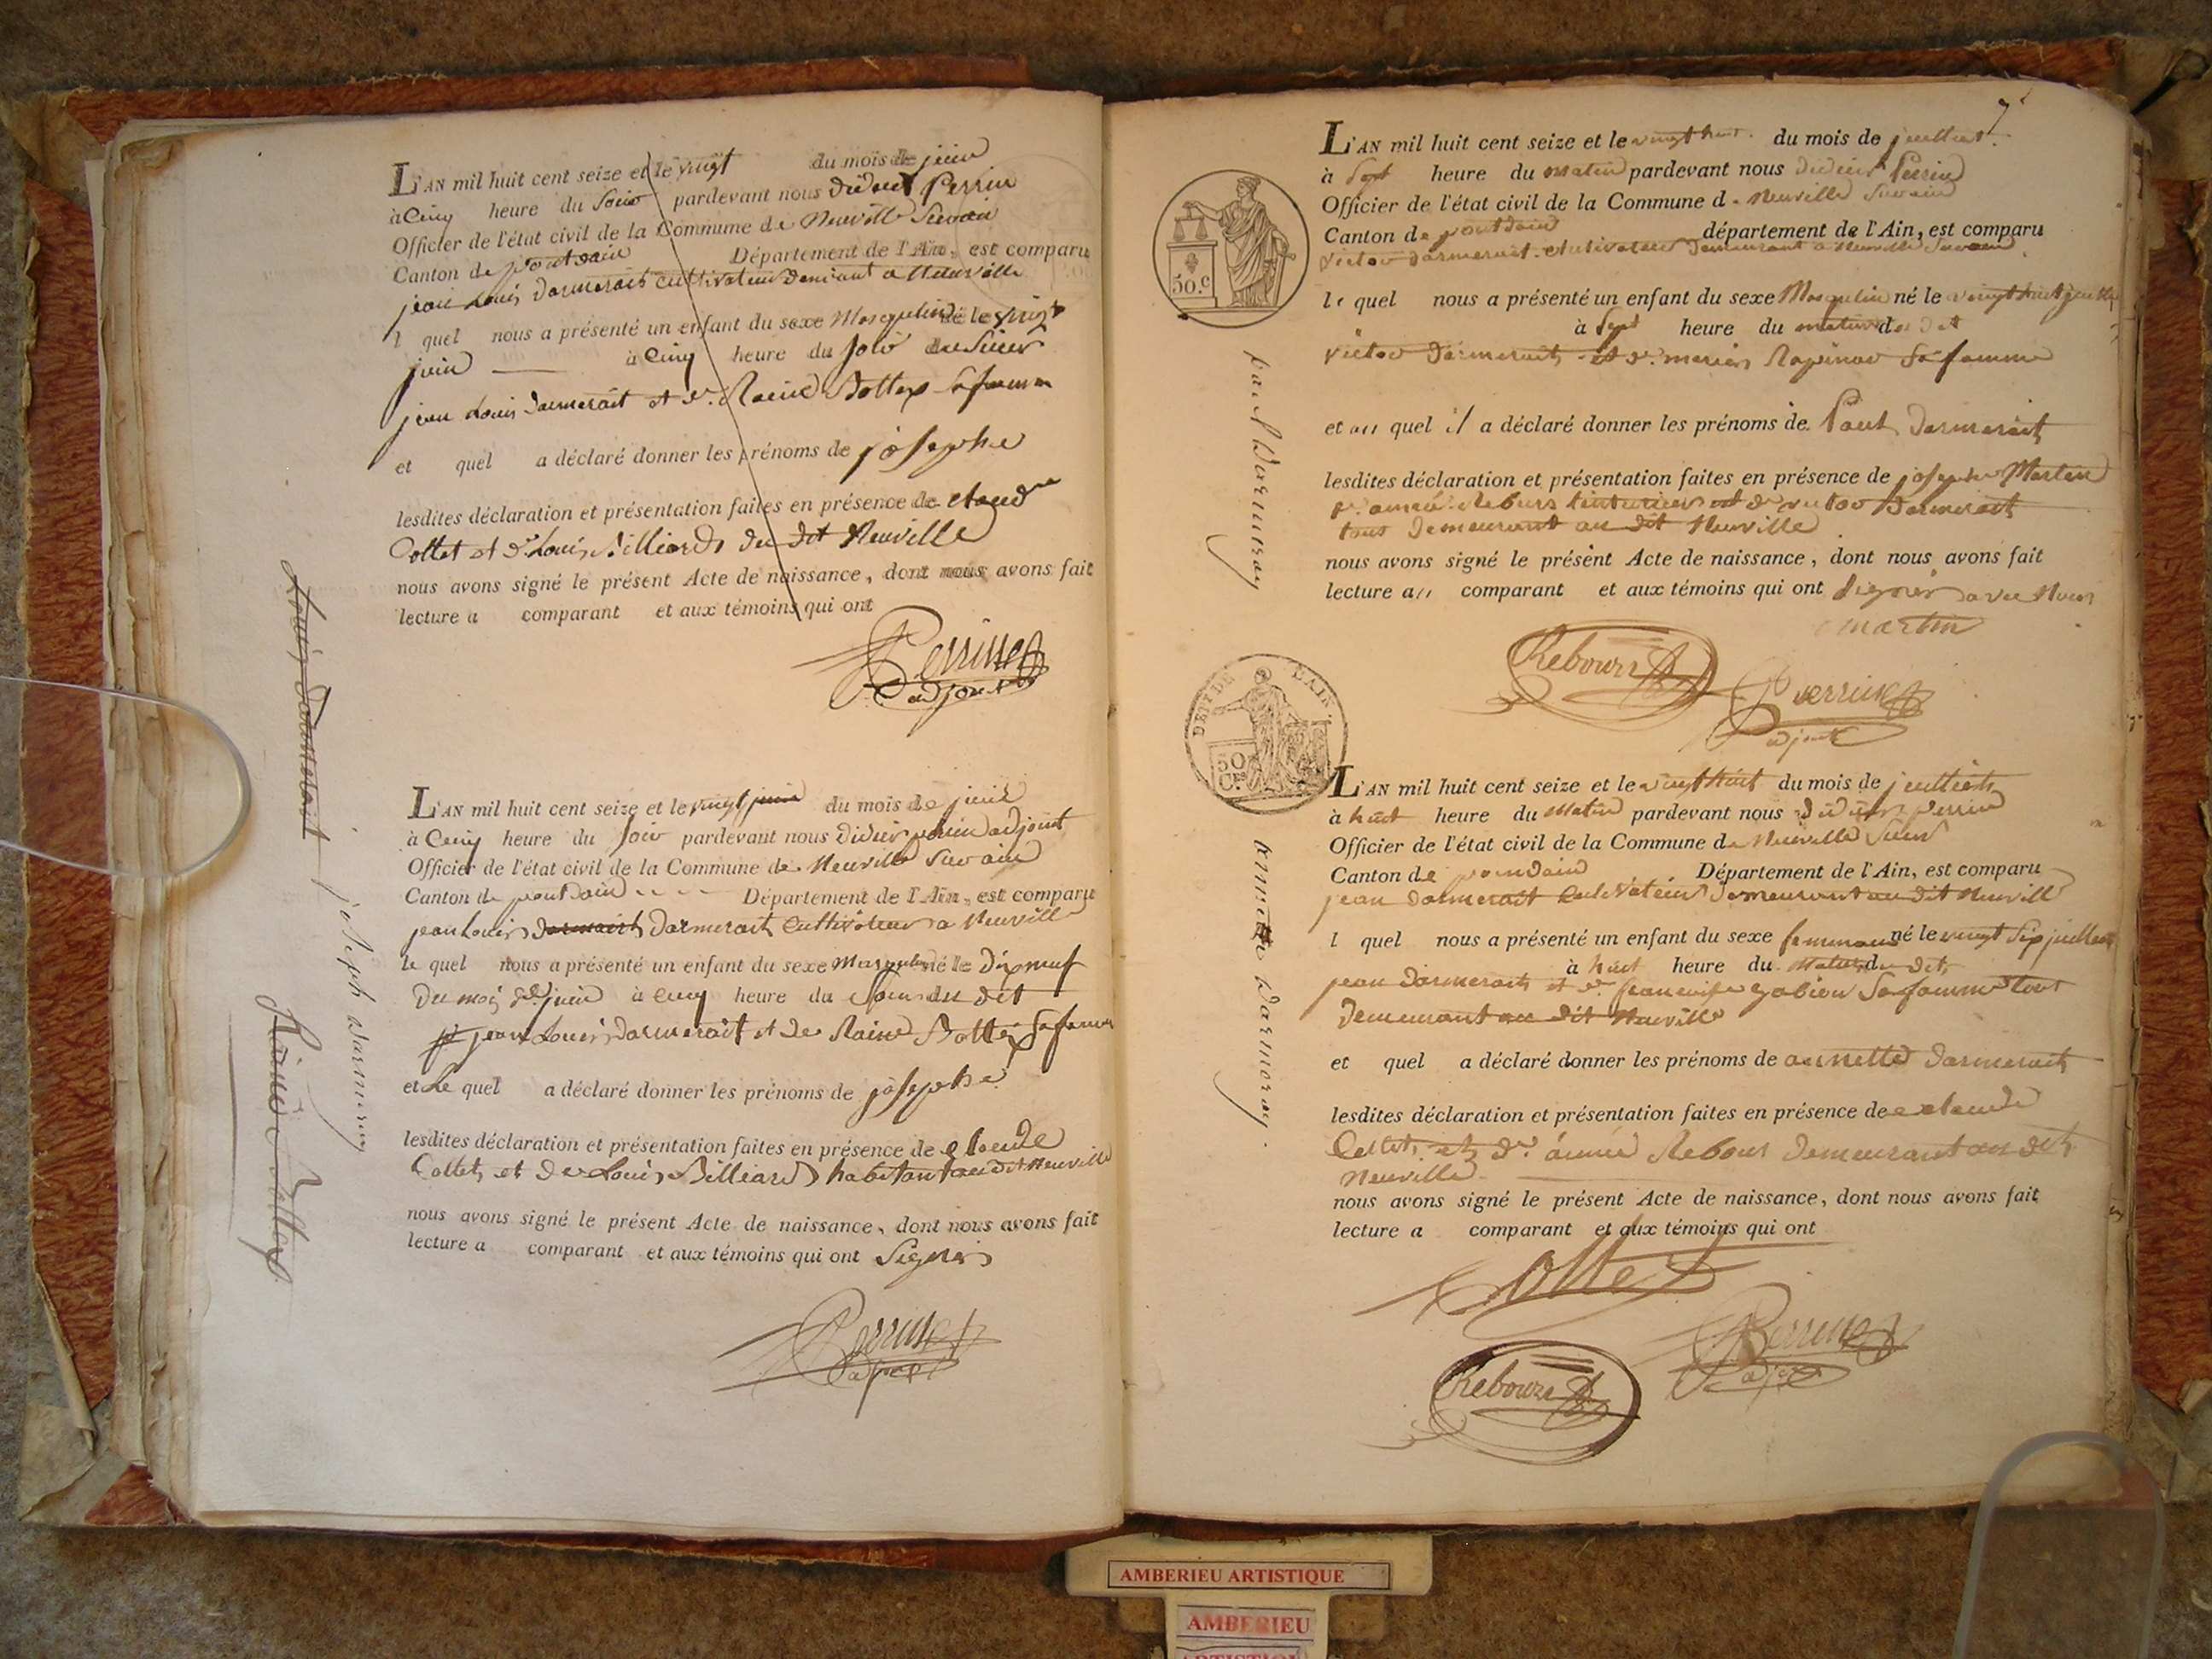 L'AN mil huit cent seize et le vingt du mois de juin
à Cinq heure du soir pardevant nous didier Perrin
Officier de l'état civil de la Commune de Neuville Surain
Canton de pontdain Département de l'Ain, est comparu
jean Louis darmerait cultivateur a Neuville
l quel nous a présenté un enfant du sexe Masqulin né le vingt
juin à Cinq heure du soir du
jean Louis darmerait et de Raine Bottex Sa femme
et quel a déclaré donner les prénoms de josephe
lesdites déclaration et présentation faites en présence de claude
Collet et de Louis Billiard du dit Neuville
nous avons signé le présent Acte de naissance, dont nous avons fait
lecture a comparant et aux témoins qui ont
Perrin
adjoint
L'AN mil huit cent seize et le vingt juin du mois de juin
à Cinq heure du soir pardevant nous Didier perrin adjoint
Officier de l'état civil de la Commune de Neuville Surain
Canton de pontdain Département de l'Ain, est comparu
jean Louis darmerait Cultivateur a Neuville
le quel nous a présenté un enfant du sexe Masqulin né le Dixneuf
Du mois de juin à Cinq heure du soir du dit
jean Louis darmerait et de Raine Bottex Sa femme
et le quel a déclaré donner les prénoms de josephe
lesdites déclaration et présentation faites en présence de claude
Collet et de Louis Billiard habitant au dit Neuville
nous avons signé le présent Acte de naissance, dont nous avons fait
lecture a comparant et aux témoins qui ont Signés
Perrin
adjoint
Louis Darmerait
joseph darmeray
Raine Bottex
7
L'AN mil huit cent seize et le vingt huit du mois de juillet
à Sept heure du matin pardevant nous didier Perrin
Officier de l'état civil de la Commune d. Neuville Surain
Canton de pontdain département de l'Ain, est comparu
victor darmerait cultivateur demeurant a Neuville Surain
le quel nous a présenté un enfant du sexe Masqulin né le vingt huit juillet
à Sept heure du matin du dit
victor darmerait et de Rapinau Sa femme
et au quel il a déclaré donner les prénoms de Paul Darmerait
lesdites déclaration et présentation faites en présence de josephe Martin
d. aimé Rebours et de victor Darmerait
tous demeurant au dit Neuville
nous avons signé le présent Acte de naissance, dont nous avons fait
lecture au comparant et aux témoins qui ont signés avec Nous
martin
Rebours
Perrin
adjoint
50.C
paul darmeray
DEP.T DE L'AIN.
50
C.ES
L'AN mil huit cent seize et le vingt huit du mois de juillet
à huit heure du matin pardevant nous didier perrin
Officier de l'état civil de la Commune de Neuville Sur
Canton de pondain Département de l'Ain, est comparu
jean darmerait Cultivateur demeurant au dit Neuville
l quel nous a présenté un enfant du sexe né le vingt Six juillet
à huit heure du matin du dit
jean darmerait et de francoise gabion Sa femme tout
demeurant au dit Neuville
et quel a déclaré donner les prénoms de annette darmerait
lesdites déclaration et présentation faites en présence de claude
Collet et de aimé Rebour demeurant au dit
Neuville
nous avons signé le présent Acte de naissance, dont nous avons fait
lecture a comparant et aux témoins qui ont
Collet
Perrin
adjoint
Rebours
annette darmeray
AMBERIEU ARTISTIQUE
AMBERIEU
ARTISTIQUE